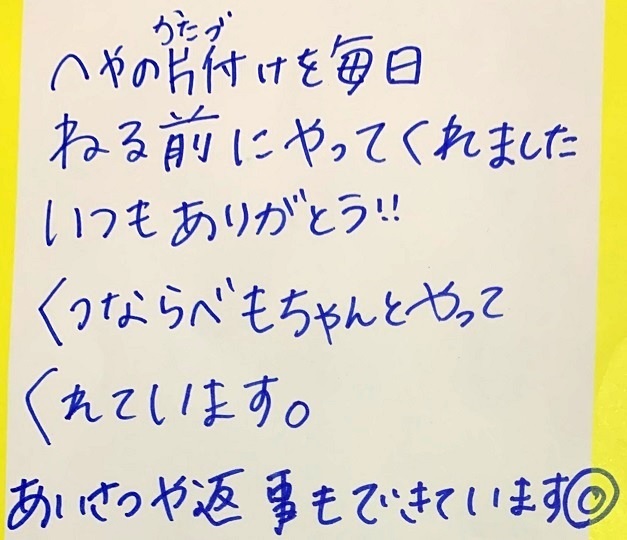 へやの片付けを毎日
かたづ
ねる前にやってくれました
いつもありがとう!!
くつならべもちゃんとやって
くれています。
あいさつや返事もできています◎